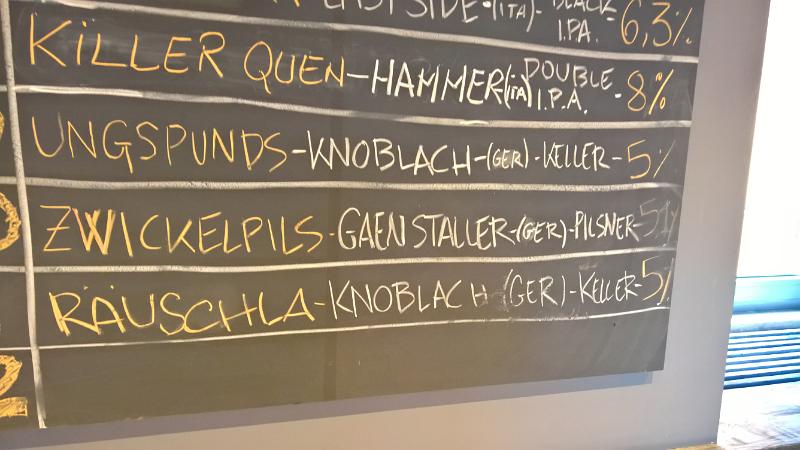 EAST SIDE-(ITA)-BLACK I.PA. 6,3%
KILLER QUEN-HAMMER(ITA) DOUBLE I.P.A. -8%
UNGSPUNDS-KNOBLACH-(GER)-KELLER-5%
ZWICKELPILS-GAENSTALLER-(GER)-PILSNER-5,1%
RÄUSCHLA-KNOBLACH (GER)-KELLER-5%
2